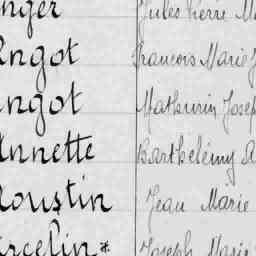 nger Jules Pierre M
Angot Francois Marie J
Angot Mathurin Josep
Annette Barthélémy A
Aoustin Jean Marie
rcelin* Joseph Marie